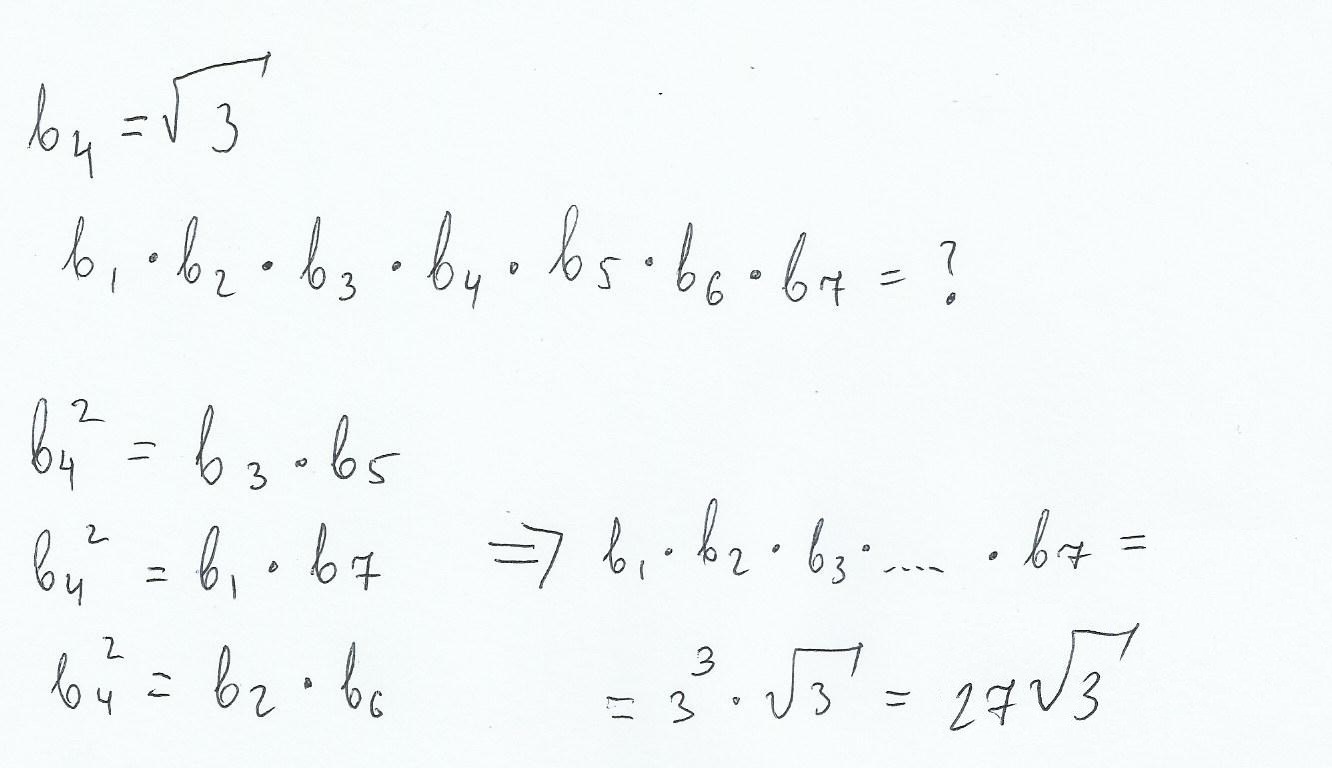 b₄ = √3
b₁ · b₂ · b₃ · b₄ · b₅ · b₆ · b₇ = ?
b₄² = b₃ · b₅
b₄² = b₁ · b₇ ⇒ b₁ · b₂ · b₃ · .... · b₇ =
b₄² = b₂ · b₆ = 3³ · √3 = 27√3